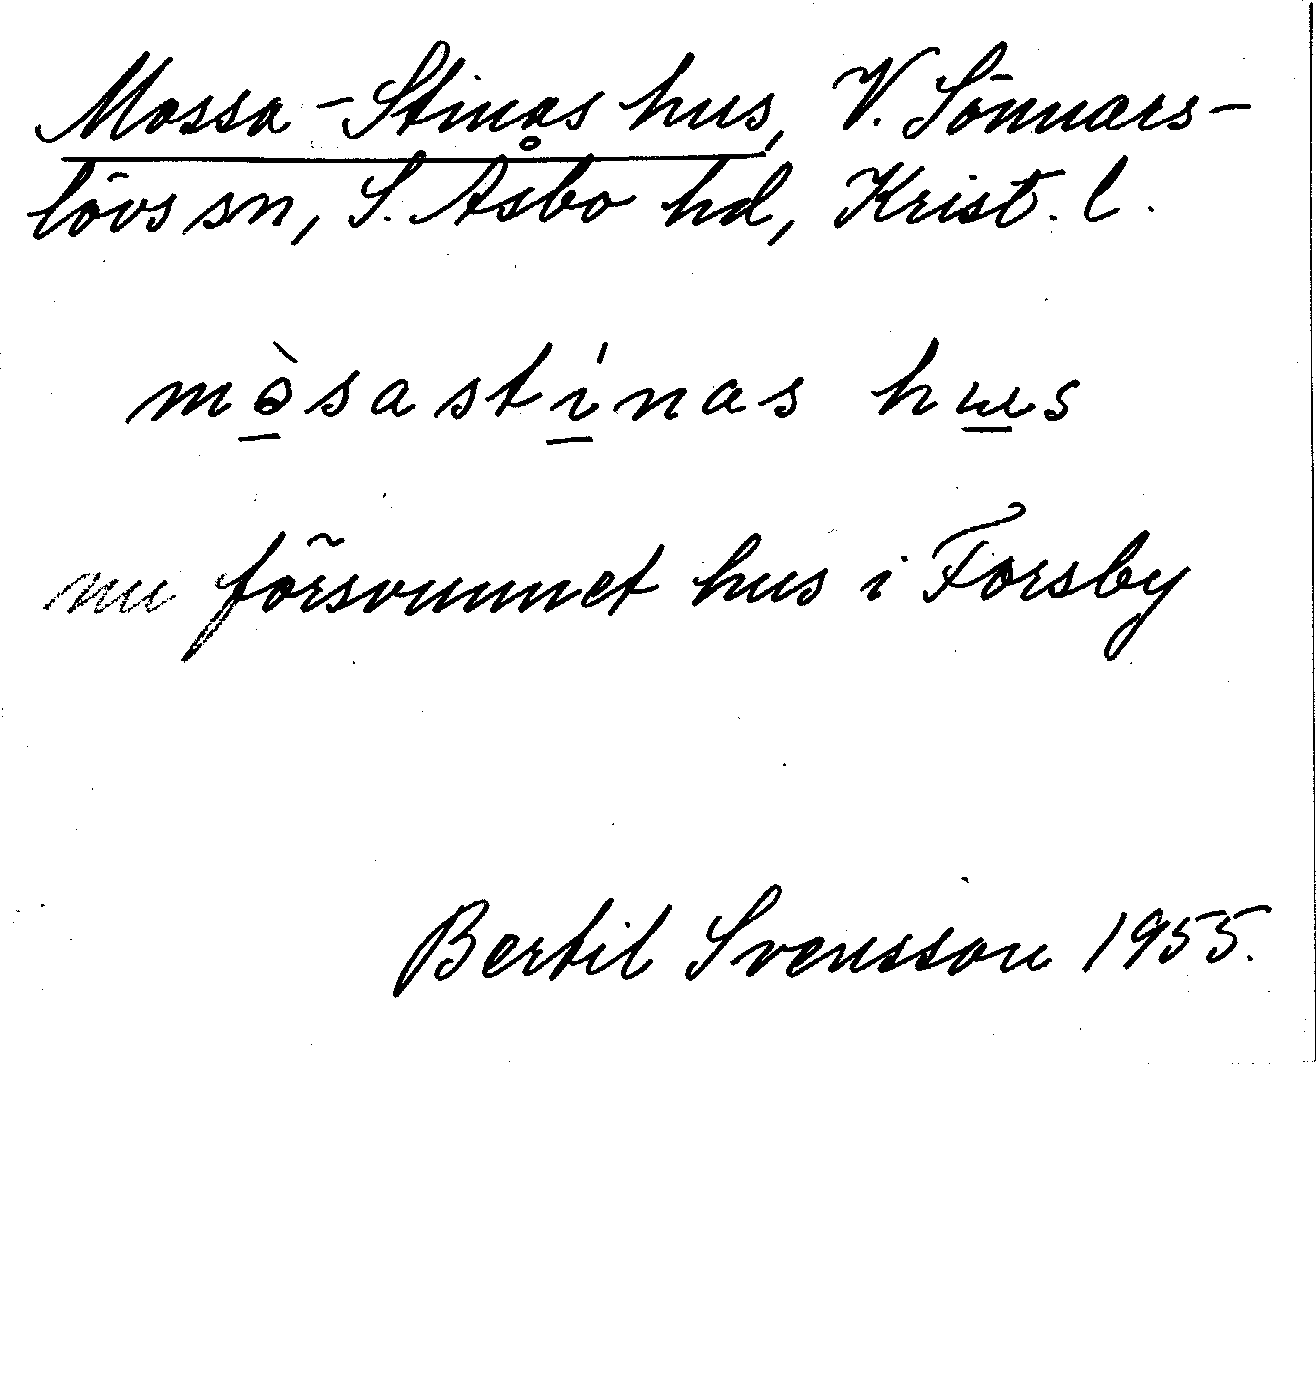 Mossa-Stinas hus, V. Sönnars-
lövs sn, S. Åsbo hd, Krist. l.
mòsastínas hus
nu försvunnet hus i Forsby
Bertil Svensson 1955.